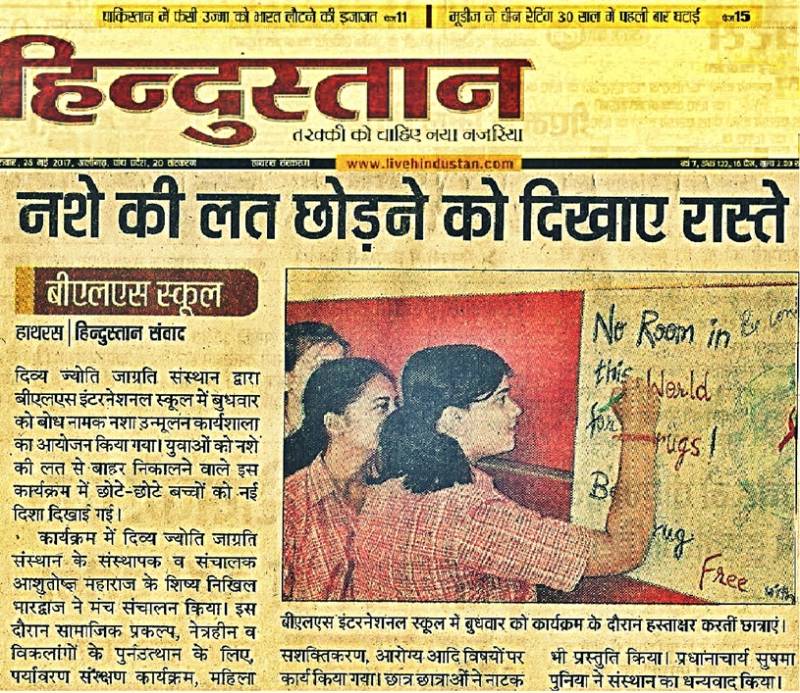 पाकिस्तान में फंसी उज्मा को भारत लौटने की इजाजत पेज 11 | मूडीज ने चीन रेटिंग 30 साल में पहली बार घटाई पेज 15
हिन्दुस्तान
तरक्की को चाहिए नया नजरिया
25 मई 2017, अलीगढ़, पांच प्रदेश, 20 संस्करण
www.livehindustan.com
नशे की लत छोड़ने को दिखाए रास्ते
बीएलएस स्कूल
हाथरस | हिन्दुस्तान संवाद
दिव्य ज्योति जाग्रति संस्थान द्वारा
बीएलएस इंटरनेशनल स्कूल में बुधवार
को बोध नामक नशा उन्मूलन कार्यशाला
का आयोजन किया गया। युवाओं को नशे
की लत से बाहर निकालने वाले इस
कार्यक्रम में छोटे-छोटे बच्चों को नई
दिशा दिखाई गई।
कार्यक्रम में दिव्य ज्योति जाग्रति
संस्थान के संस्थापक व संचालक
आशुतोष महाराज के शिष्य निखिल
भारद्वाज ने मंच संचालन किया। इस
दौरान सामाजिक प्रकल्प, नेत्रहीन व
विकलांगों के पुनंउत्थान के लिए,
पर्यावरण संरक्षण कार्यक्रम, महिला
No Room in
this World
for rugs!
B rug
Free
बीएलएस इंटरनेशनल स्कूल में बुधवार को कार्यक्रम के दौरान हस्ताक्षर करतीं छात्राएं।
सशक्तिकरण, आरोग्य आदि विषयों पर
कार्य किया गया। छात्र छात्राओं ने नाटक
भी प्रस्तुति किया। प्रधानाचार्य सुषमा
पुनिया ने संस्थान का धन्यवाद किया।